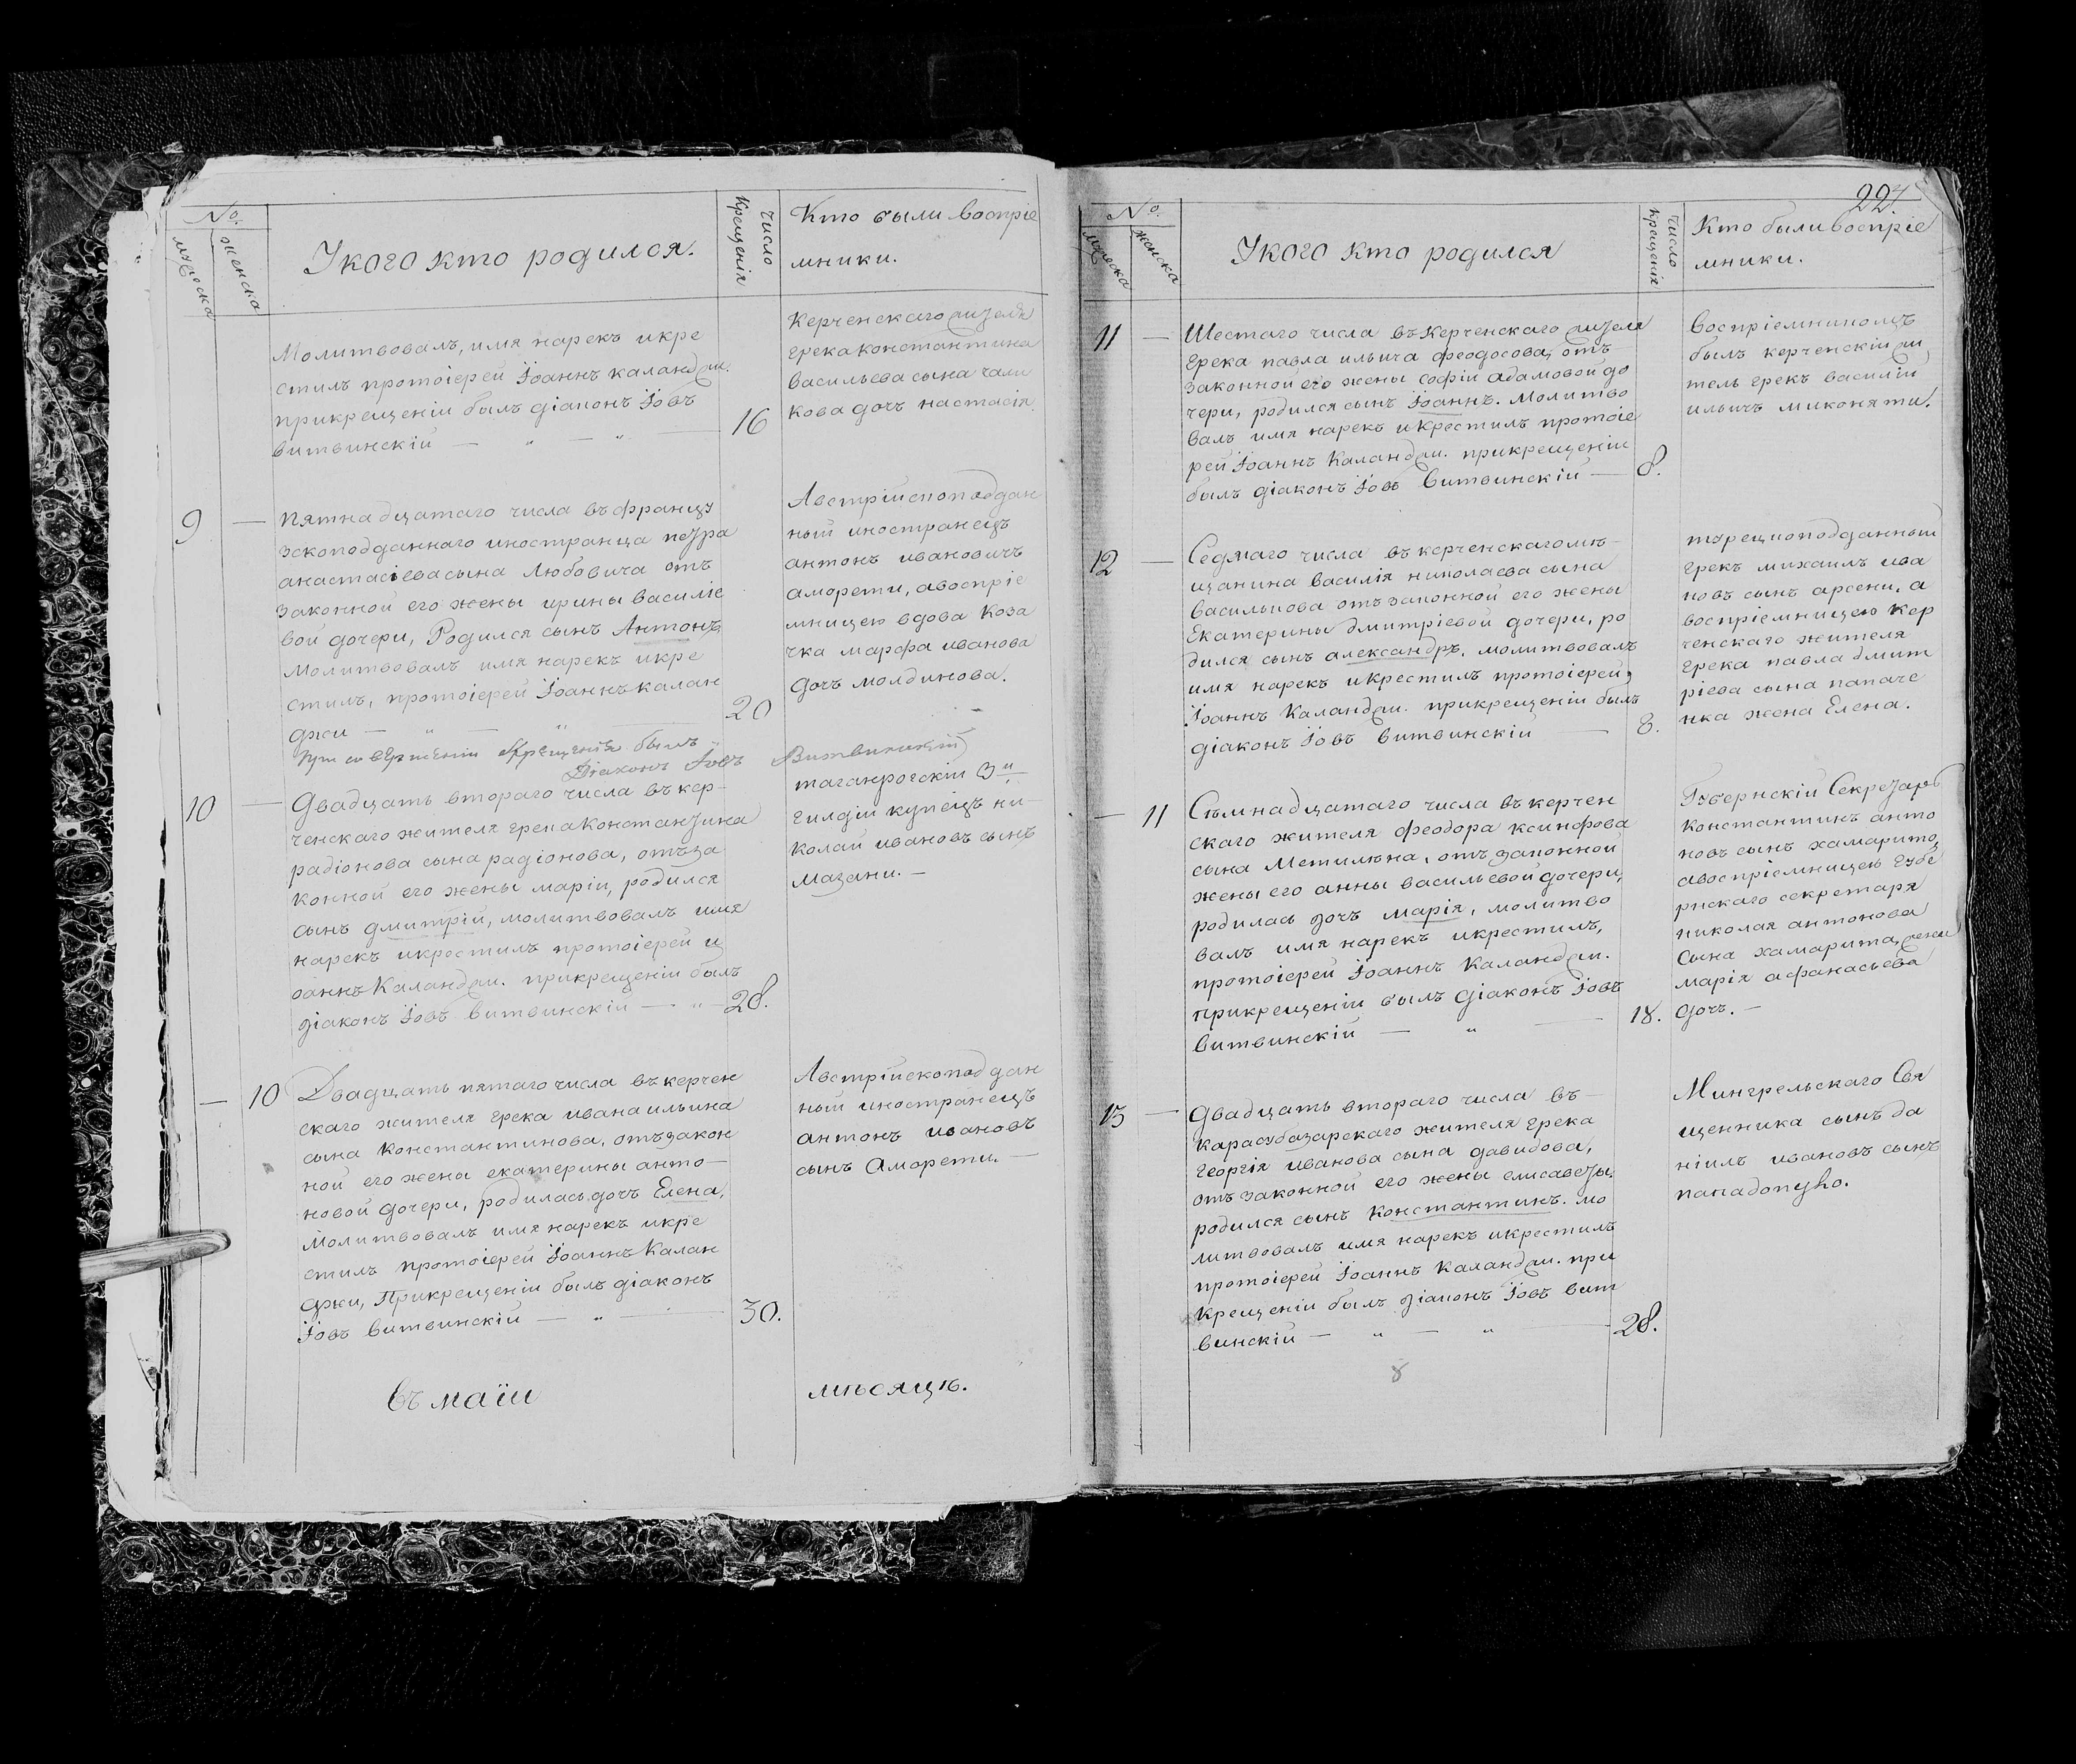 №.
мужеска
женска
Укого кто родился.
число
крещенія
Кто были воспріе
мники.
Молитвовалъ, имя нарекъ икре
стилъ протоіерей Іоаннъ каланджи.
прикрещеніи былъ діаконъ Іовъ
витвинскій — „ — „ —
16
Керченскаго жителя
грека константина
васильева сына чали
кова дочъ настасія
9 —
пятнадцатаго числа въ францу
зскоподданнаго иностранца петра
анастасіева сына Любовича отъ
законной его жены ирины василіе
вой дочери, Родился сынъ Антонъ
молитвовалъ имя нарекъ икре
стилъ, протоіерей Іоаннъ калан
джи — „ — „ —
20
Австрійскоподдан
ный иностранецъ
антонъ ивановичъ
аморети, авоспріе
мницею вдова Коза
чка марфа иванова
дочъ молдинова.
При совершеніи Крещенія былъ
Діаконъ Іовъ Витвинскій
10 —
Двадцать втораго числа въ кер-
ченскаго жителя грека константина
радіонова сына радіонова, отъ за
конной его жены маріи, родился
сынъ дмитрій, молитвовалъ имя
нарекъ икрестилъ протоіерей и
оаннъ Каланджи. прикрещеніи былъ
діаконъ Іовъ витвинскій — „ —
28.
таганрогскій 3й
гилдіи купецъ ни-
колай ивановъ сынъ
мазани. —
— 10
Двадцать пятаго числа въ керчен
скаго жителя грека ивана ильина
сына константинова, отъ закон
ной его жены екатерины анто-
новой дочери, родилась дочъ Елена,
молитвовалъ имя нарекъ икре
стилъ протоіерей Іоаннъ Калан
джи, Прикрещеніи былъ діаконъ
Іовъ витвинскій — „ —
30.
Австрійскоподдан
ный иностранецъ
антонъ ивановъ
сынъ Аморети. —
въ маїи мѣсяцѣ.
224
№.
мужеска
женска
Укого кто родился
число
крещенія
Кто были воспріе
мники.
11 —
Шестаго числа въ Керченскаго жителя
грека павла ильича феодосова, отъ
законной его жены софіи адамовой до
чери, родился сынъ Іоаннъ. молитво
валъ имя нарекъ икрестилъ протоіе
рей Іоаннъ Каланджи. прикрещеніи
былъ діаконъ Іовъ витвинскій —
8.
воспріемникомъ
былъ керченскій жи
тель грекъ василій
ильичъ миконяти.
12 —
Седмаго числа въ керченскаго мѣ-
щанина василія николаева сына
васильпова отъ законной его жены
Екатерины дмитріевой дочери, ро
дился сынъ александръ. молитвовалъ
имя нарекъ икрестилъ протоіерей
Іоаннъ Каланджи. прикрещеніи былъ
діаконъ Іовъ витвинскій —
8.
турецкоподданный
грекъ михаилъ ива
новъ сынъ арсени, а
воспріемницею Кер
ченскаго жителя
грека павла дмит
ріева сына папаче
нка жена Елена.
— 11
Съмнадцатаго числа въ керчен
скаго жителя феодора ксинфова
сына Метилѣна, отъ законной
жены его анны васильевой дочери,
родилась дочъ марія, молитво
валъ имя нарекъ икрестилъ,
протоіерей Іоаннъ Каланджи.
прикрещеніи былъ діаконъ Іовъ
витвинскій — „ —
18.
Губернскій Секретаръ
Константинъ анто
новъ сынъ хамарито,
авоспріемницею губе
рнскаго секретаря
николая антонова
сына хамарита, жена
марія афанасьева
дочъ. —
13 —
Двадцать втораго числа въ-
карасубазарскаго жителя грека
георгія иванова сына давидова,
отъ законной его жены елисаветы.
родился сынъ константинъ. мо
литвовалъ имя нарекъ икрестилъ
протоіерей Іоаннъ каланджи. при
крещеніи былъ діаконъ Іовъ вит
винскій — „ — „ —
28.
Мингрельскаго Свя
щенника сынъ да
ніилъ ивановъ сынъ
пападопуло.
8